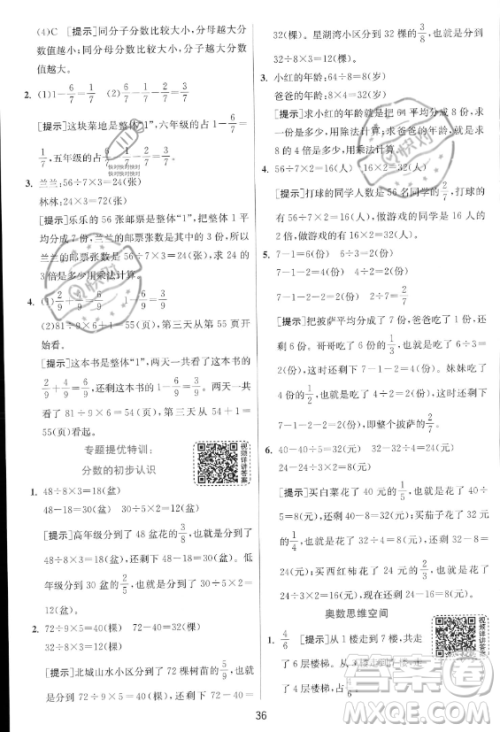 (4)C [提示]同分子分数比较大小,分母越大
值越小;同分母分数比较大小,分子越大分数
值越大。
2. (1)1-6/7=1/7 6/7-1/7-2/7=3/7
[提示]这块菜地是整体“1”,六年级的占1-6/7
=1/7,五年级的占
3. 兰兰:56÷7×3=24(张)
林林:24×3=72(张)
[提示]乐乐的56张邮票是整体“1”,把它平
均分成7份,兰兰的邮票张数是其中的3份,所
以
3倍是多少,用乘法计算。
4. (1)2/9 4/9 6/9 3/9
(2)81÷9×6+1=55(页),第三天从第55页开
始看。
[提示]这本书是整体“1”,两天一共看了这本书的
2/9+4/9=6/9,还剩这本书的1-6/9=3/9。两天一共看
了81÷9×6=54(页),第三天从54+1=55
(页)看起。
专题提优特训:
分数的初步认识
视频详讲答案
1. 48÷8×3=18(盆)
48-18=30(盆) 30÷5×2=12(盆)
[提示]高年级分到了48盆花的3/8,也就是分到
了48÷8×3=18(盆),还剩下48-18=30(盆)。低
年级分到30盆的2/5,也就是分到了30÷5×2=
12(盆)。
2. 72÷9×5=40(棵) 72-40=32(棵)
32÷8×3=12(棵)
[提示]北城山水小区分到了72棵树苗的5/9,也
就是分到了72÷9×5=40(棵),还剩下72-40=
32(棵)。星湖湾小区分到32棵的3/8,也就是分
到了32÷8×3=12(棵)。
3. 小红的年龄:64÷8=8(岁)
爸爸的年龄:8×4=32(岁)
[提示]求小红的年龄就是把64平均分成8份,求
其中一份是多少,用除法计算;求爸爸的年龄就是
求4个8是多少,用乘法计算。
4. 56÷7×2=16(人) 16÷8×2=4(人)
[提示]打球的同学人数是56名同学的2/7,也就
是56÷7×2=16(人),做游戏的同学是16人的
2/8,也就是做游戏的有16÷8×2=4(人)。
5. 7-1=6(份) 6÷3=2(份)
7-1-2=4(份) 4÷2=2(份)
7-1-2-2=2(份)
[提示]把披萨平均分成了7份,爸爸吃了1份,
还剩6份。哥哥吃了6÷3×1=2(份),这时还剩
下7-1-2=4(份)。妹妹吃了4÷2×1=
2(份),这时还剩下7-1-2-2=2(份),所以妈妈
吃了2份,也就是整个披萨的2/7。
6. 40-40÷5=32(元) 32-32÷4=24(元)
24-24÷3=16(元)
[提示]买白菜花了40元的1/5,也就是花了40÷
5=8(元),还剩下40-8=32(元);买茄子花了32元
的1/4,也就是花了32÷4=8(元),还剩下32-8=
24(元);买西红柿花了24元的1/3,也就是花了24÷
3=8(元),还剩下24-8=16(元)。
奥数思维空间
视频详讲答案
4/6 [提示]从1楼走到7楼,一共走
了6层楼梯。从1楼走到5楼,走
了4层楼梯,占4/6。
36
答案圈
MXQE.COM